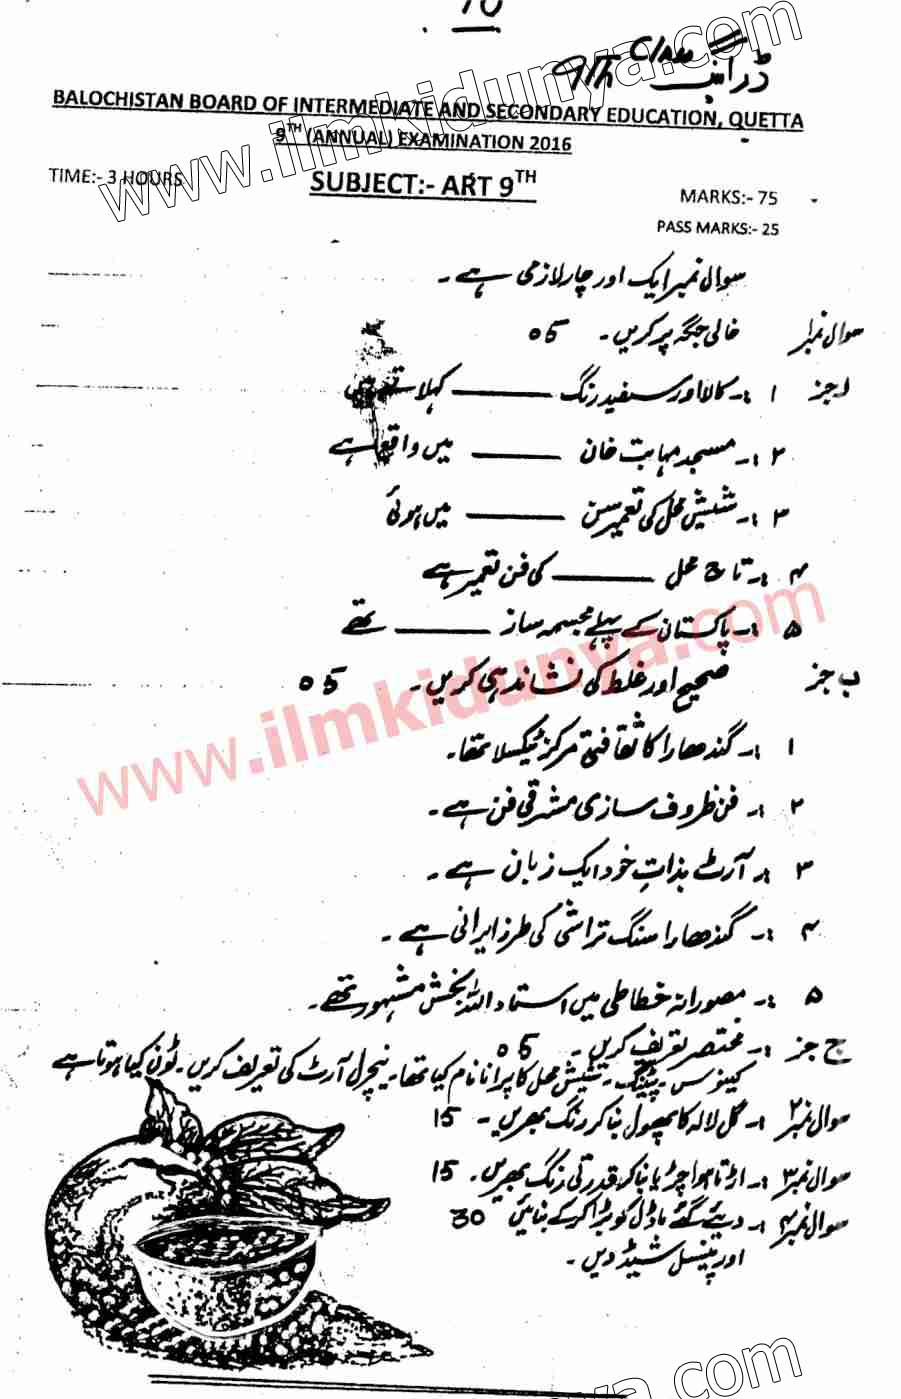 10
9th Class ڈرائنگ
BALOCHISTAN BOARD OF INTERMEDIATE AND SECONDARY EDUCATION, QUETTA
9TH (ANNUAL) EXAMINATION 2016
TIME:- 3 HOURS
SUBJECT:- ART 9TH
MARKS:- 75
PASS MARKS:- 25
سوال نمبر ایک اور چار لازمی ہے۔
سوال نمبر ۱ خالی جگہ پر کریں۔ 05
ا جز ۱ :۔ کالا اور سفید رنگ ــــــ کہلاتے ہیں
۲ :۔ مسجد مہابت خان ــــــ میں واقع ہے
۳ :۔ شیش محل کی تعمیر سن ــــــ میں ہوئی
۴ :۔ تاج محل ــــــ کی فن تعمیر ہے
۵ :۔ پاکستان کے پہلے مجسمہ ساز ــــــ تھے
ب جز صحیح اور غلط کی نشاندہی کریں۔ 05
۱ :۔ گندھارا کا ثقافتی مرکز ٹیکسلا تھا۔
۲ :۔ فن ظروف سازی مشرقی فن ہے۔
۳ :۔ آرٹ بذات خود ایک زبان ہے۔
۴ :۔ گندھارا سنگ تراشی کی طرز ایرانی ہے۔
۵ :۔ مصورانہ خطاطی میں استاد اللہ بخش مشہور تھے۔
ج جز :۔ مختصر تعریف کریں۔ 05
کینوس۔ پینٹنگ۔ شیش محل کا پرانا نام کیا تھا۔ نیچرل آرٹ کی تعریف کریں۔ ٹون کیا ہوتا ہے
سوال نمبر ۲ :۔ گل لالہ کا پھول بنا کر رنگ بھریں۔ 15
سوال نمبر ۳ :۔ اڑتا ہوا چڑیا بنا کر قدرتی رنگ بھریں۔ 15
سوال نمبر ۴ :۔ دیئے گئے ماڈل کو بڑا کر کے بنائیں 30
اور پینسل شیڈ دیں۔
www.ilmkidunya.com
www.ilmkidunya.com